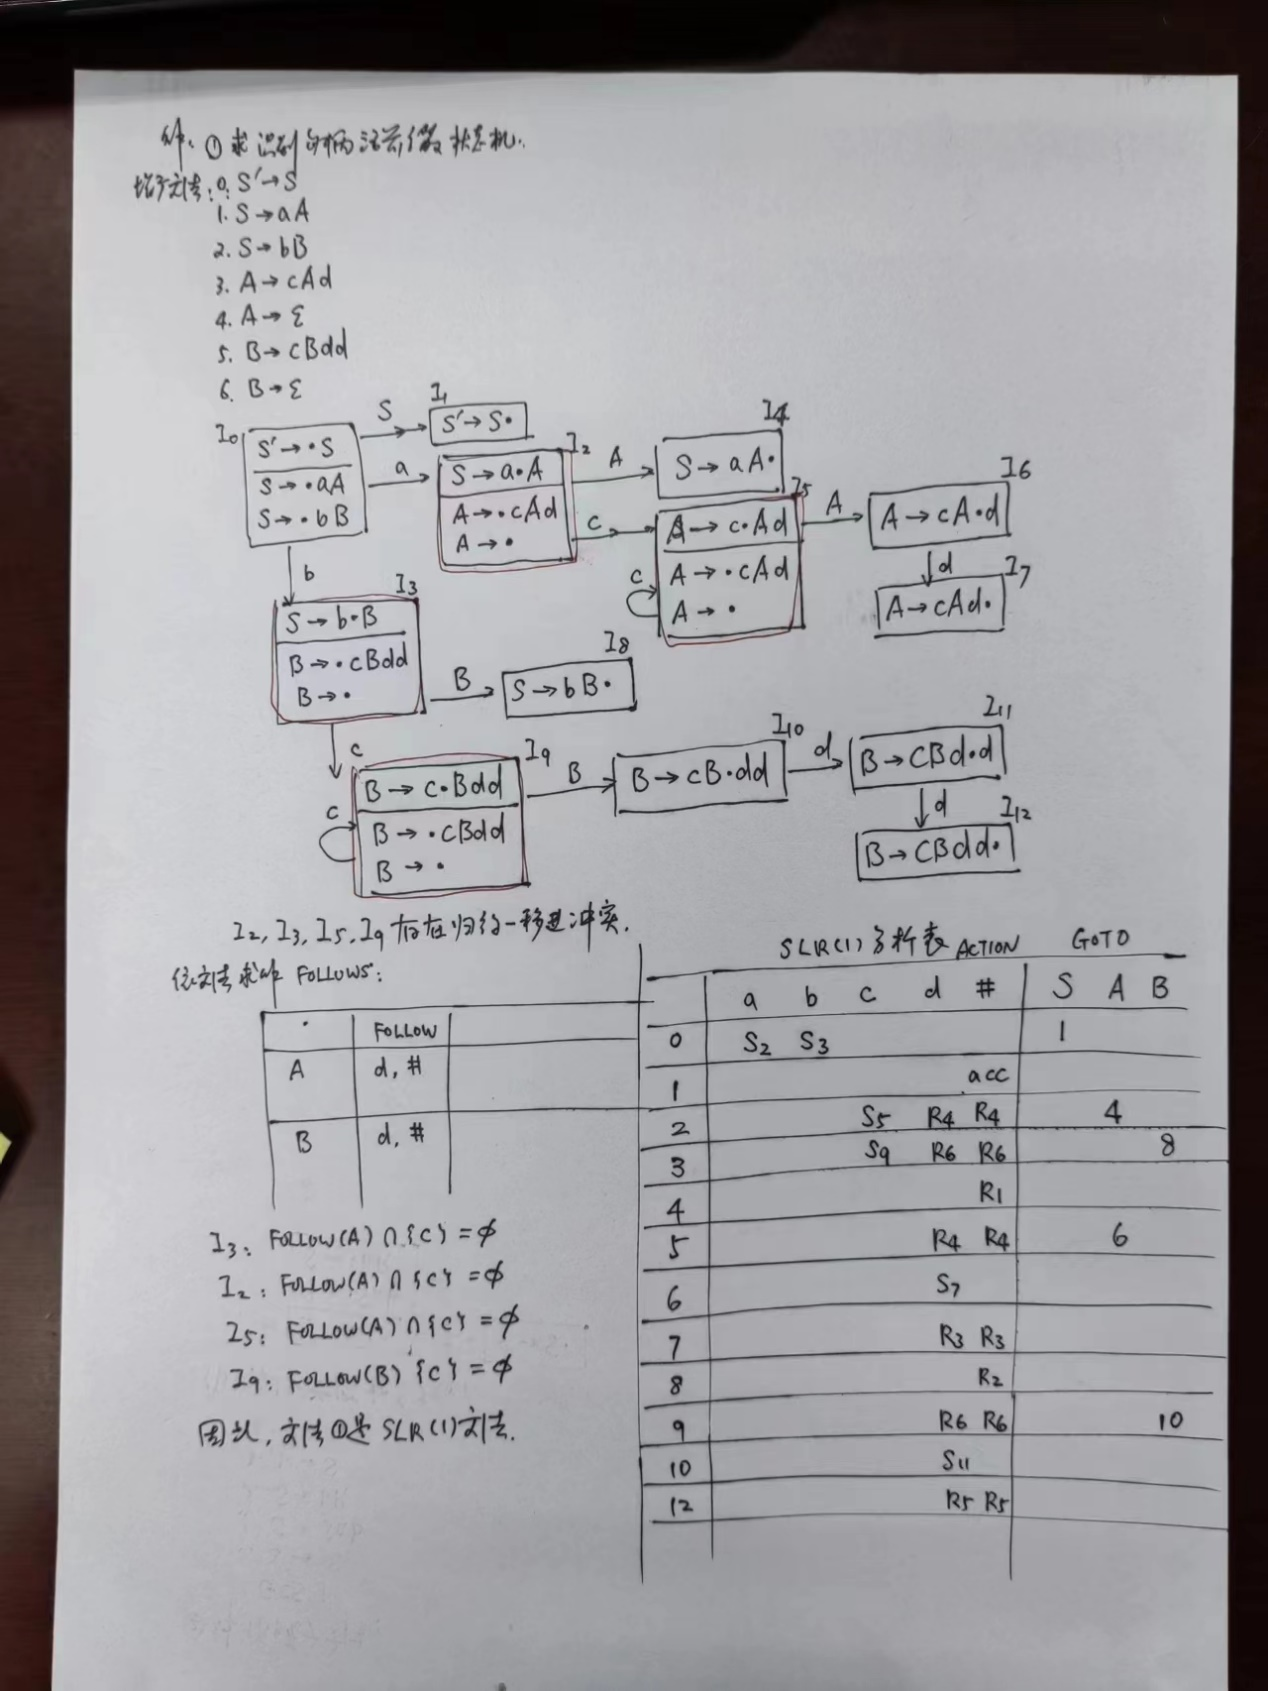 解：①求识别句柄活前缀状态机.
拓广文法：0. S'→S
1. S→aA
2. S→bB
3. A→cAd
4. A→ε
5. B→cBdd
6. B→ε
I0
S'→·S
S→·aA
S→·bB
S
I1
S'→S·
a
I2
S→a·A
A→·cAd
A→·
A
I4
S→aA·
c
I5
A→c·Ad
A→·cAd
A→·
c
A
I6
A→cA·d
d
I7
A→cAd·
b
I3
S→b·B
B→·cBdd
B→·
B
I8
S→bB·
c
I9
B→c·Bdd
B→·cBdd
B→·
c
B
I10
B→cB·dd
d
I11
B→CBd·d
d
I12
B→CBdd·
I2, I3, I5, I9 存在归约-移进冲突.
依文法求解 FOLLOWS:
FOLLOW
A d, #
B d, #
I3: FOLLOW(A)∩{c}=φ
I2: FOLLOW(A)∩{c}=φ
I5: FOLLOW(A)∩{c}=φ
I9: FOLLOW(B) {c}=φ
因此, 文法①是 SLR(1)文法.
SLR(1)分析表 ACTION GOTO
a b c d # S A B
0 S2 S3 1
1 acc
2 S5 R4 R4 4
3 S9 R6 R6 8
4 R1
5 R4 R4 6
6 S7
7 R3 R3
8 R2
9 R6 R6 10
10 S11
12 R5 R5